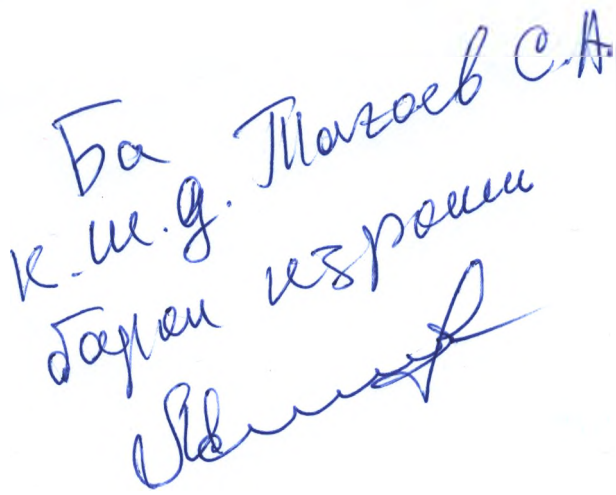 Ба
к.ш.д. Тагоев С.А.
барои иҷроиш